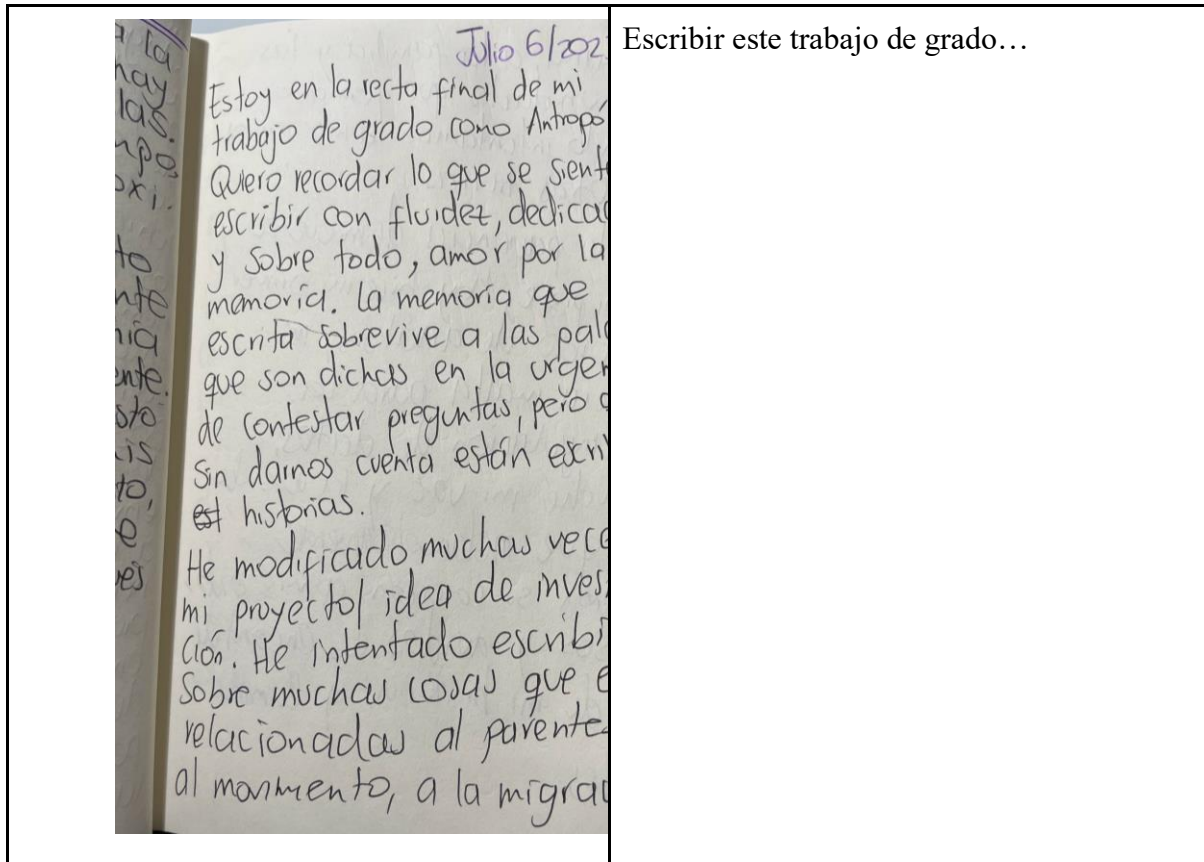 a la
hay
las.
mpo,
oxi.
to
nte
nia
ente.
sto
is
to,
e
es
Julio 6/202
Estoy en la recta final de mi
trabajo de grado como Antropó
Quiero recordar lo que se sient
escribir con fluidez, dedicac
y sobre todo, amor por la
memoria. La memoria que
escrita sobrevive a las pala
que son dichas en la urgen
de contestar preguntas, pero
sin darnos cuenta están escri
est historias.
He modificado muchas vece
mi proyecto/ idea de inves
ción. He intentado escribi
sobre muchas cosas que e
relacionadas al parente
al movimiento, a la migrac
Escribir este trabajo de grado…